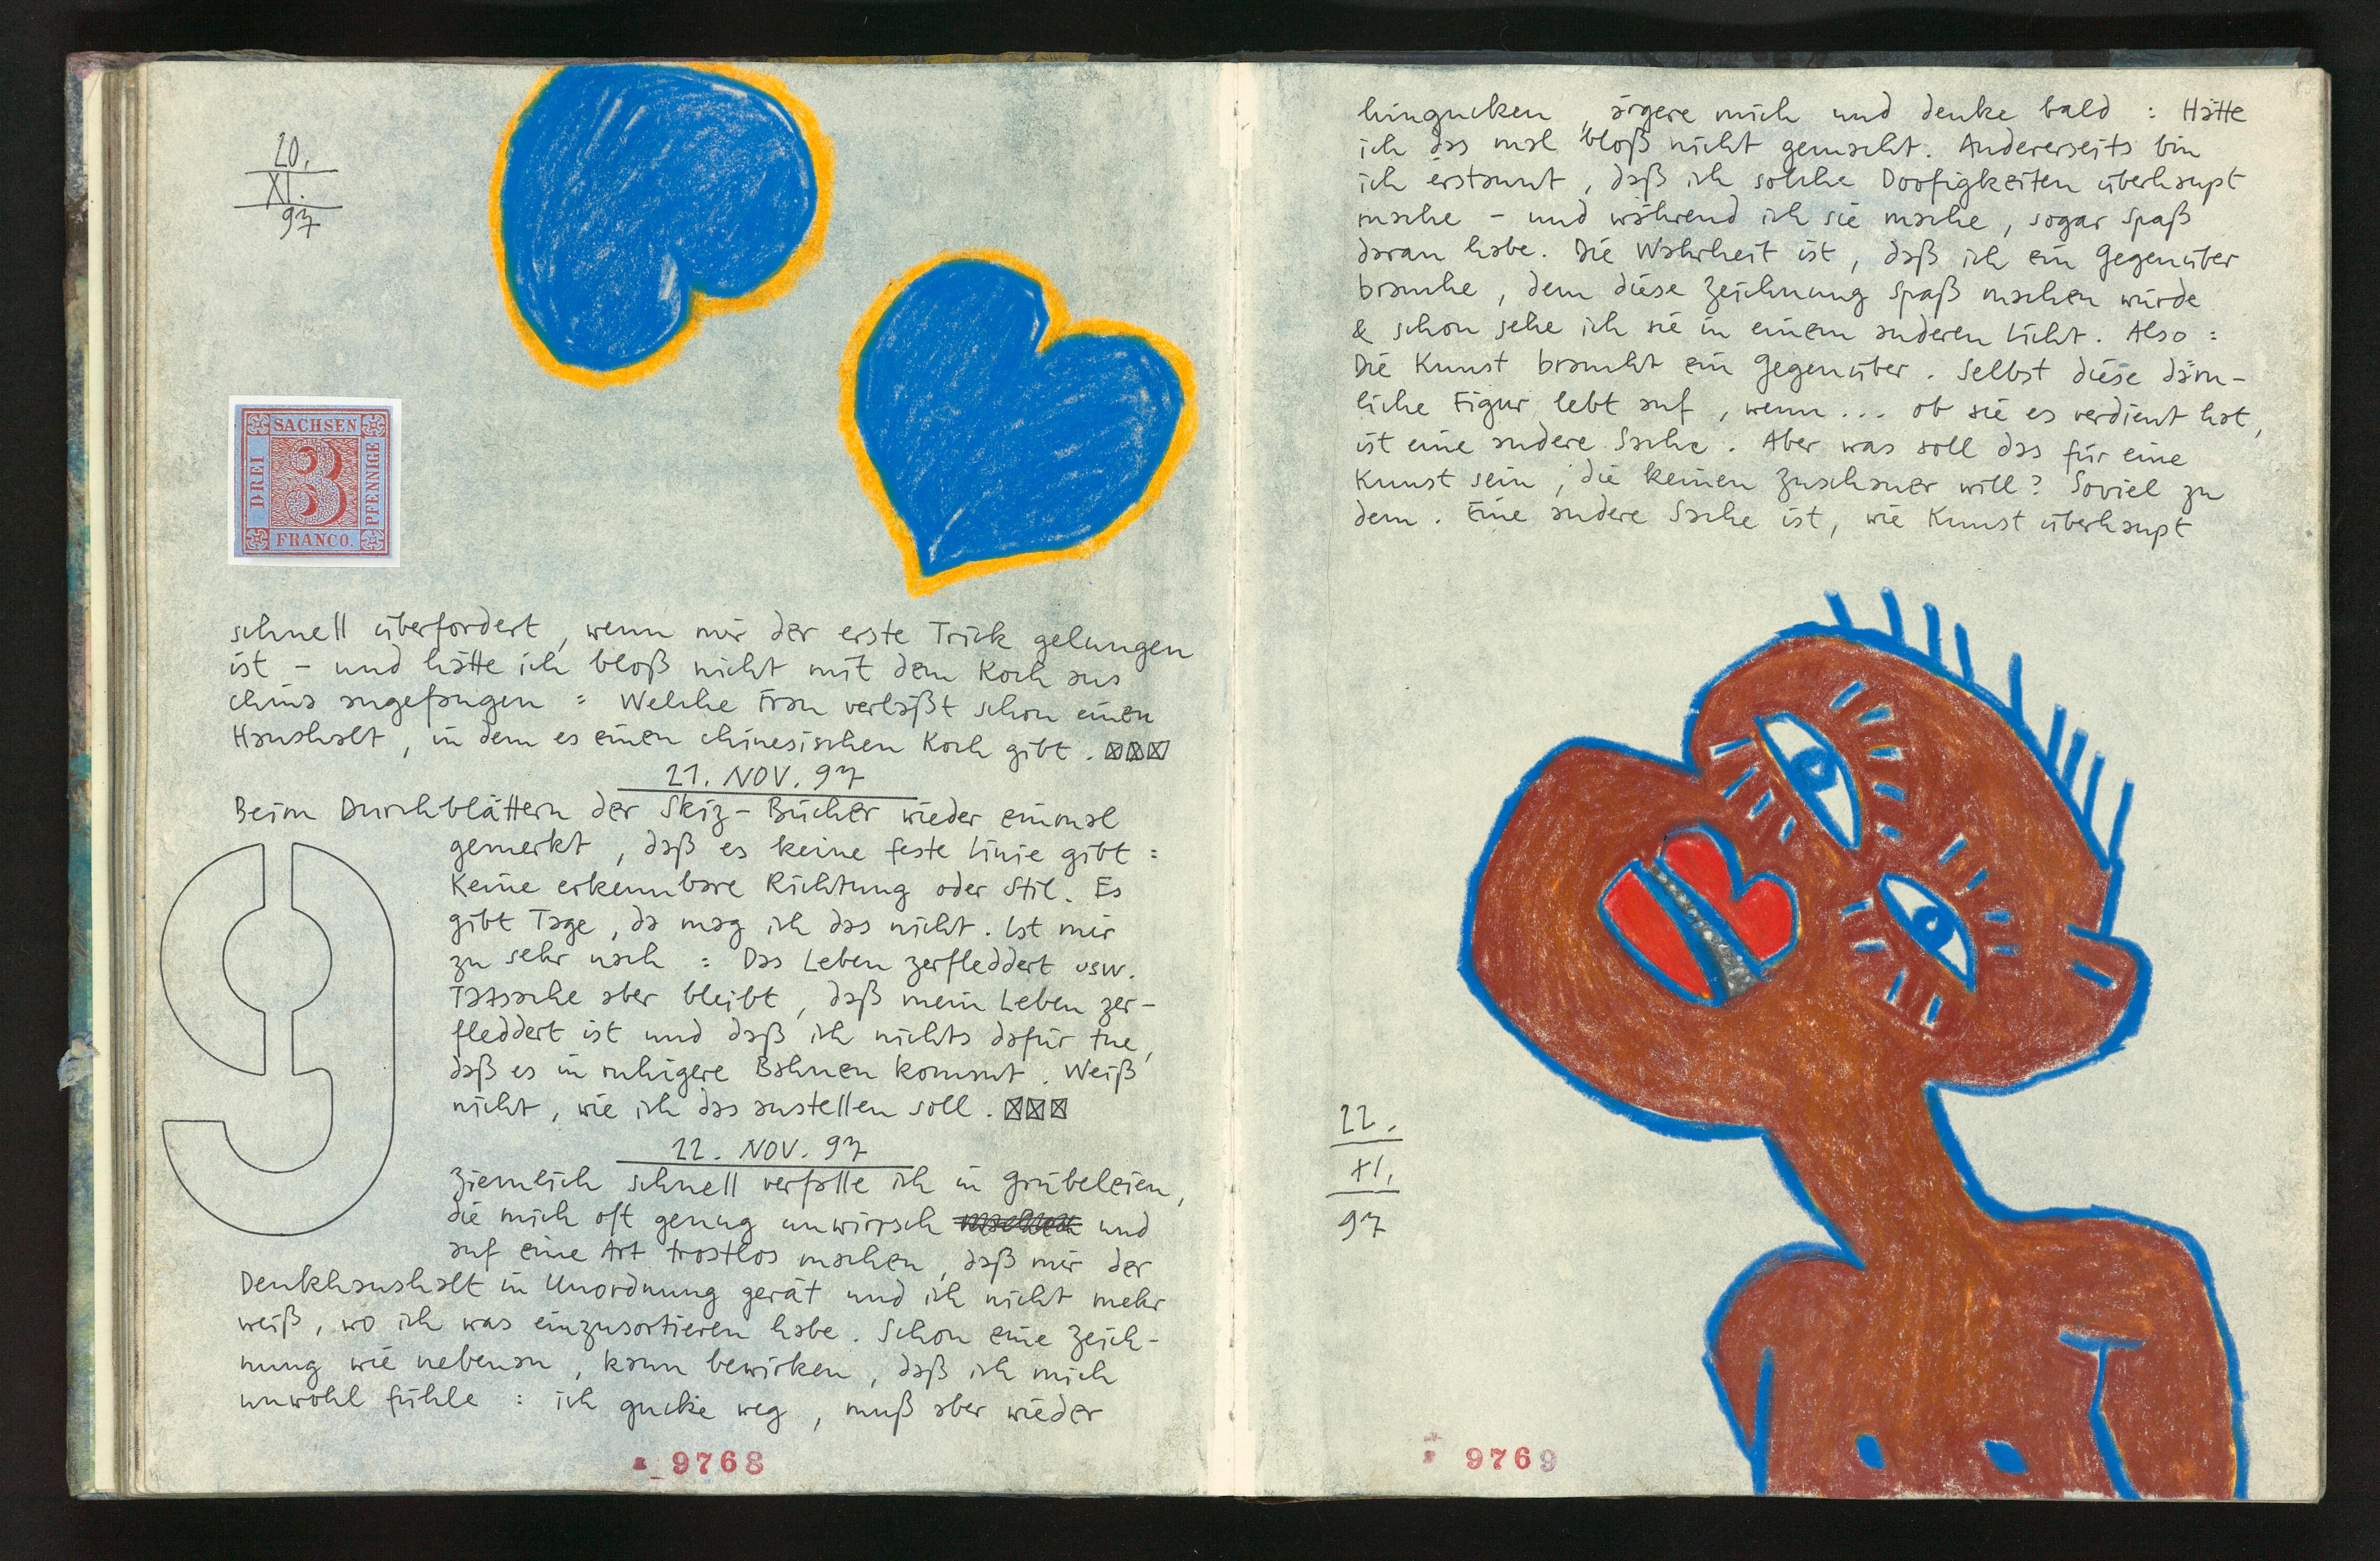 20.
XI.
97
SACHSEN
DREI
3
PFENNIGE
FRANCO.
schnell überfordert, wenn mir der erste Trick gelungen
ist – und hätte ich bloß nicht mit dem Koch aus
China angefangen : Welche Frau verläßt schon einen
Haushalt, in dem es einen chinesischen Koch gibt.
21. NOV. 97
Beim Durchblättern der Skiz-Bücher wieder einmal
gemerkt, daß es keine feste Linie gibt :
Keine erkennbare Richtung oder Stil. Es
gibt Tage, da mag ich das nicht. Ist mir
zu sehr nach : Das Leben zerfleddert usw.
Tatsache aber bleibt, daß mein Leben zer-
fleddert ist und daß ich nichts dafür tue,
daß es in ruhigere Bahnen kommt. Weiß
nicht, wie ich das anstellen soll.
9
22. NOV. 97
Ziemlich schnell verfalle ich in Grübeleien,
die mich oft genug unwirrsch und
auf eine Art trostlos machen, daß mir der
Denkhaushalt in Unordnung gerät und ich nicht mehr
weiß, wo ich was einzusortieren habe. Schon eine Zeich-
nung wie nebenan, kann bewirken, daß ich mich
unwohl fühle : ich gucke weg, muß aber wieder
9768
hingucken, ärgere mich und denke bald : Hätte
ich das mal bloß nicht gemacht. Andererseits bin
ich erstaunt, daß ich solche Doofigkeiten überhaupt
mache – und während ich sie mache, sogar Spaß
daran habe. Die Wahrheit ist, daß ich ein Gegenüber
brauche, dem diese Zeichnung Spaß machen würde
& schon sehe ich sie in einem anderen Licht. Also :
Die Kunst braucht ein Gegenüber. Selbst diese däm-
liche Figur lebt auf, wenn ... ob sie es verdient hat,
ist eine andere Sache. Aber was soll das für eine
Kunst sein, die keinen Zuschauer will? Soviel zu
dem. Eine andere Sache ist, wie Kunst überhaupt
22.
XI.
97
9769